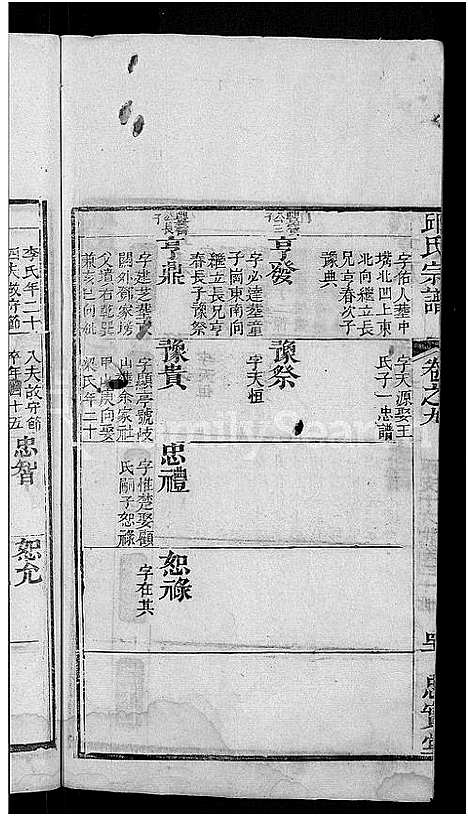 邱氏宗譜
卷之九
忠實堂
字佑人塟中
塆北凹上東
北向繼立長
兄亨春次子
豫典
字天源娶王
氏子一忠譜
亨發
字必達塟童
子崗東南向
繼立長兄亨
春長子豫祭
豫祭
字天恒
亨鼎
字建芝塟
閣外鄧家塝
父墳右乾
兼亥巳向
豫貴
字顯亭號歧
山塟余家社
甲山庚向娶
梁氏年二十
忠禮
字惟楚娶顧
氏嗣子恕祿
恕祿
字在其
李氏年二十
四夫故守節
入夫故守節
卒年四十五
忠智
恕允